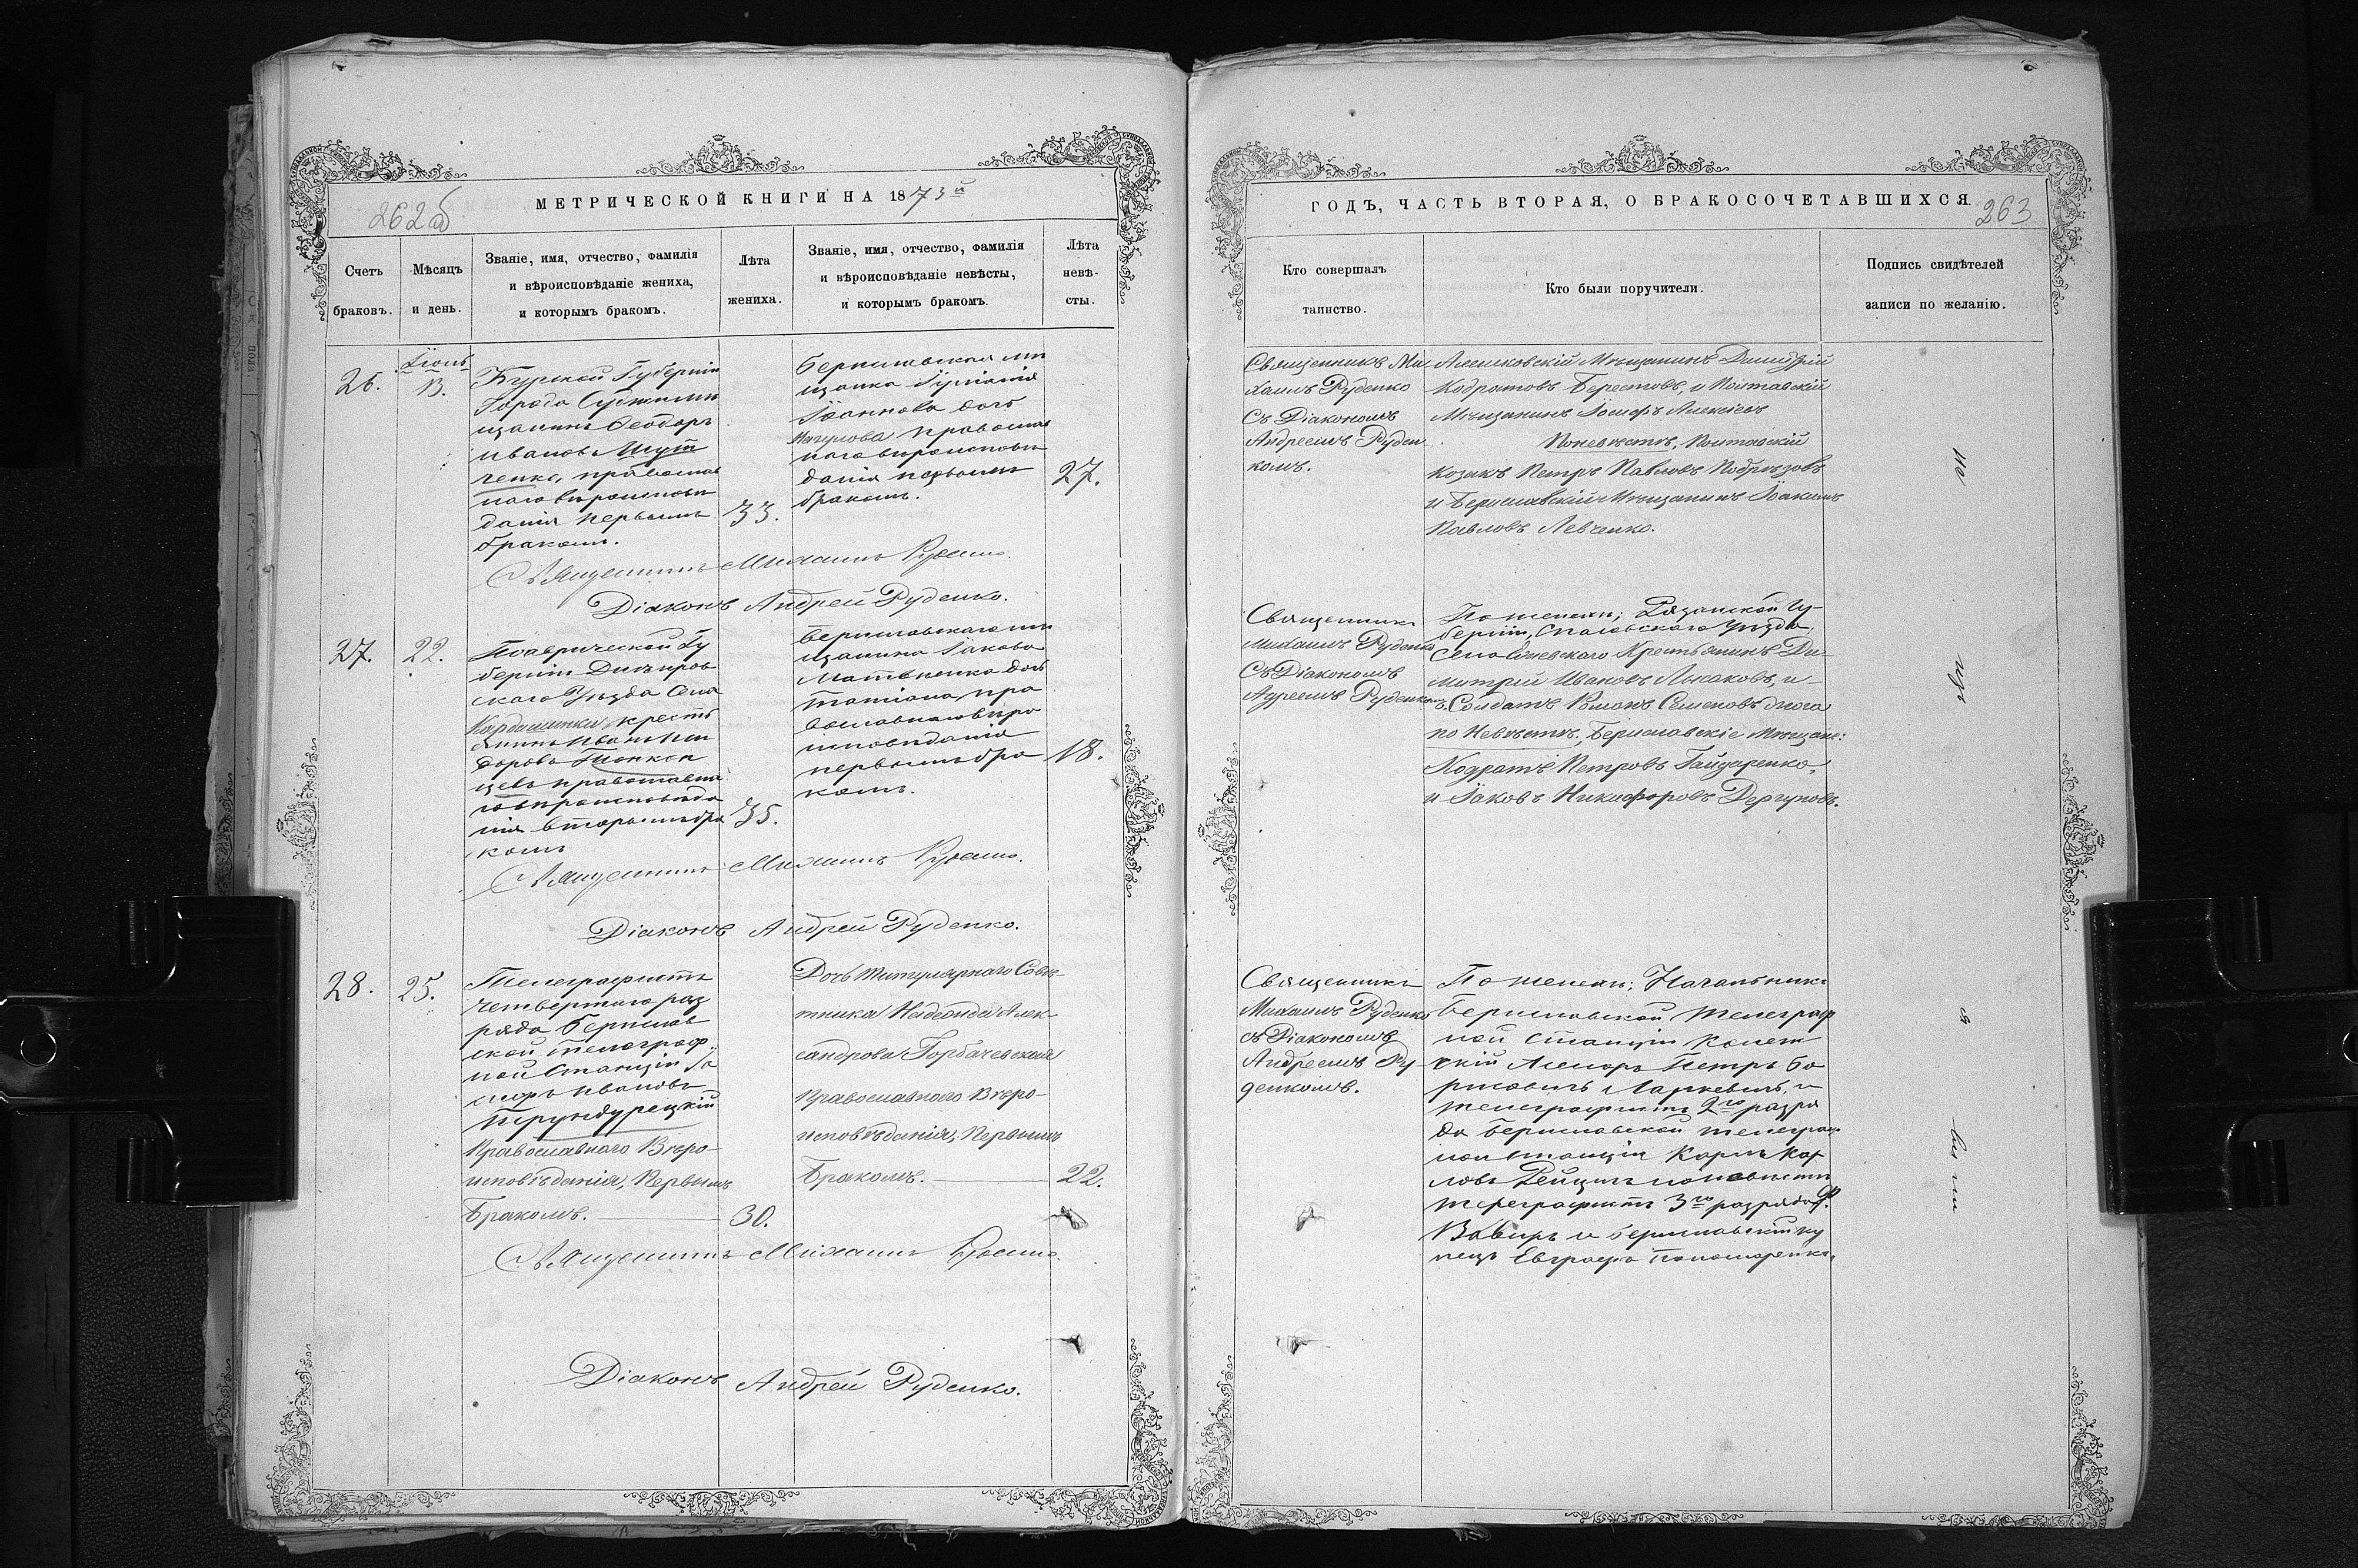 МЕТРИЧЕСКОЙ КНИГИ НА 1873й
262об
Счетъ браковъ.
Мѣсяцъ и день.
Званіе, имя, отчество, фамилія
и вѣроисповѣданіе жениха,
и которымъ бракомъ.
Лѣта жениха.
Званіе, имя, отчество, фамилія
и вѣроисповѣданіе невѣсты,
и которымъ бракомъ.
Лѣта невѣ-
сты.
26.
Іюнь
8.
Курской Губерніи
Города Суджи мѣ
щанинъ Ѳеодоръ
Ивановъ Шут
ченко, православ
наго вѣроисповѣ
данія первымъ
бракомъ.
33.
Бериславская мѣ
щанка Іуліанія
Іоаннова дочь
православ
наго вѣроисповѣ
данія первымъ
бракомъ.
27.
Священникъ Михаилъ Руденко.
Діаконъ Андрей Руденко.
27.
22.
Таврической Гу
берніи Днѣпров
скаго Уѣзда Села
Кардашинки кресть
янинъ Иванъ
православна
го вѣроисповѣда
нія вторымъ бра
комъ
35.
Бериславскаго мѣ
щанина Іакова
Матвѣенка дочь
Татіана, пра
вославнаго вѣро
исповѣданія
первымъ бра
комъ.
18.
Священникъ Михаилъ Руденко.
Діаконъ Андрей Руденко.
28.
25.
Телеграфистъ
четвертаго раз
ряда Берислав
ской телеграф
ной Станціи
Ивановъ
Православнаго Вѣро-
исповѣданія, Первымъ
Бракомъ.
30.
Дочь титулярнаго Совѣ-
тника Надежда Алек-
сандрова Горбачевская
Православнаго Вѣро-
исповѣданія, Первымъ
Бракомъ.
22.
Священникъ Михаилъ Руденко.
Діаконъ Андрей Руденко.
ГОДЪ, ЧАСТЬ ВТОРАЯ, О БРАКОСОЧЕТАВШИХСЯ.
263
Кто совершалъ
таинство.
Кто были поручители.
Подпись свидѣтелей
записи по желанію.
Священникъ Ми
хаилъ Руденко
Съ Діакономъ
Андреемъ Руден
комъ.
Алешковскій Мѣщанинъ Димитрій
Кодратовъ Берестовъ, и Полтавскій
Мѣщанинъ Іосифъ Алексѣевъ
По невѣстѣ, Полтавскій
Козакъ Петръ Павловъ Подрѣзовъ
и Бериславскій Мѣщанинъ Іоакимъ
Павловъ Левченко.
Священникъ
Михаилъ Руденко
Съ Діакономъ
Адреемъ Руденкомъ.
По женихѣ; Рязанской Гу-
берніи, Спасовскаго Уѣзда,
Села Крестьянинъ Ди-
митрій Ивановъ Лысаковъ, и
Солдатъ Романъ Семеновъ
по Невѣстѣ, Бериславскіе Мѣщане:
Кодратъ Петровъ Гайдаренко,
и Іаковъ Никифоровъ Дергуновъ.
Священникъ
Михаилъ Руденко
съ Діакономъ
Андреемъ Ру
денкомъ.
По женихѣ; Начальникъ
Бериславской телеграф
ной станціи Колеж
скій Асесоръ Петръ Бо
рисовичъ Ларкевичъ, и
телеграфистъ 2го разря
да Бериславской телеграф
ной станціи Карлъ Кар
ловъ по невѣстѣ
телеграфистъ 3го разряда
и Бериславскій ку
пецъ Евграфъ Пономаренко.